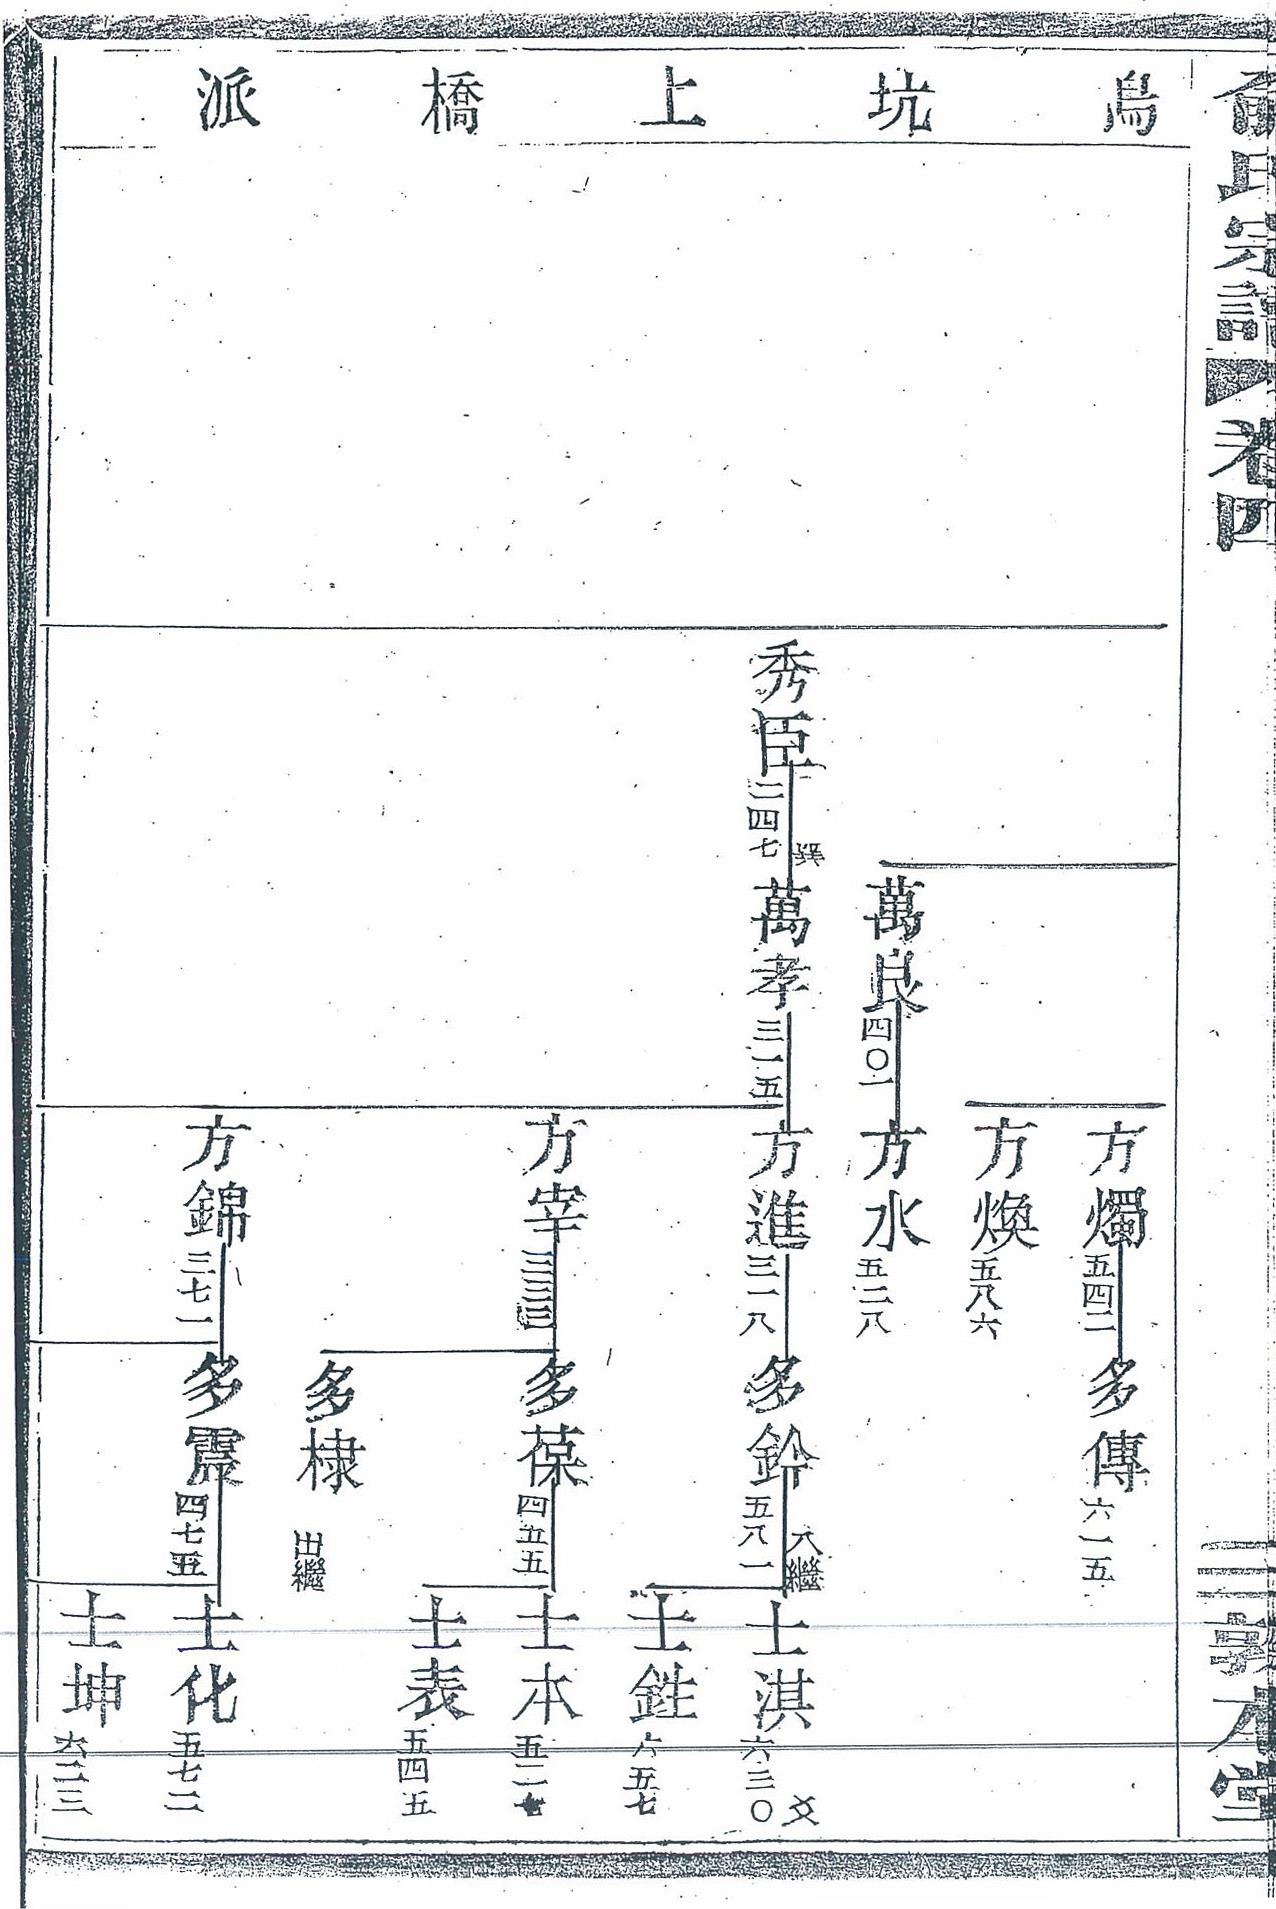 氏宗譜
卷四
三
敦本堂
烏坑上橋派
方燭 五四二
多傳 六一五
方煥 五八六
萬良 四〇一
方水 五二八
秀臣 二四七
萬孝 三一五
方進 三一八
多鈴 五八一
入繼
士淇 六三〇
士銈 六五七
方宰 三三三
多葆 四五五
士本
士表 五四五
多棣 出繼
方錦 三七一
多震 四七五
士化 五七二
士坤 六二三